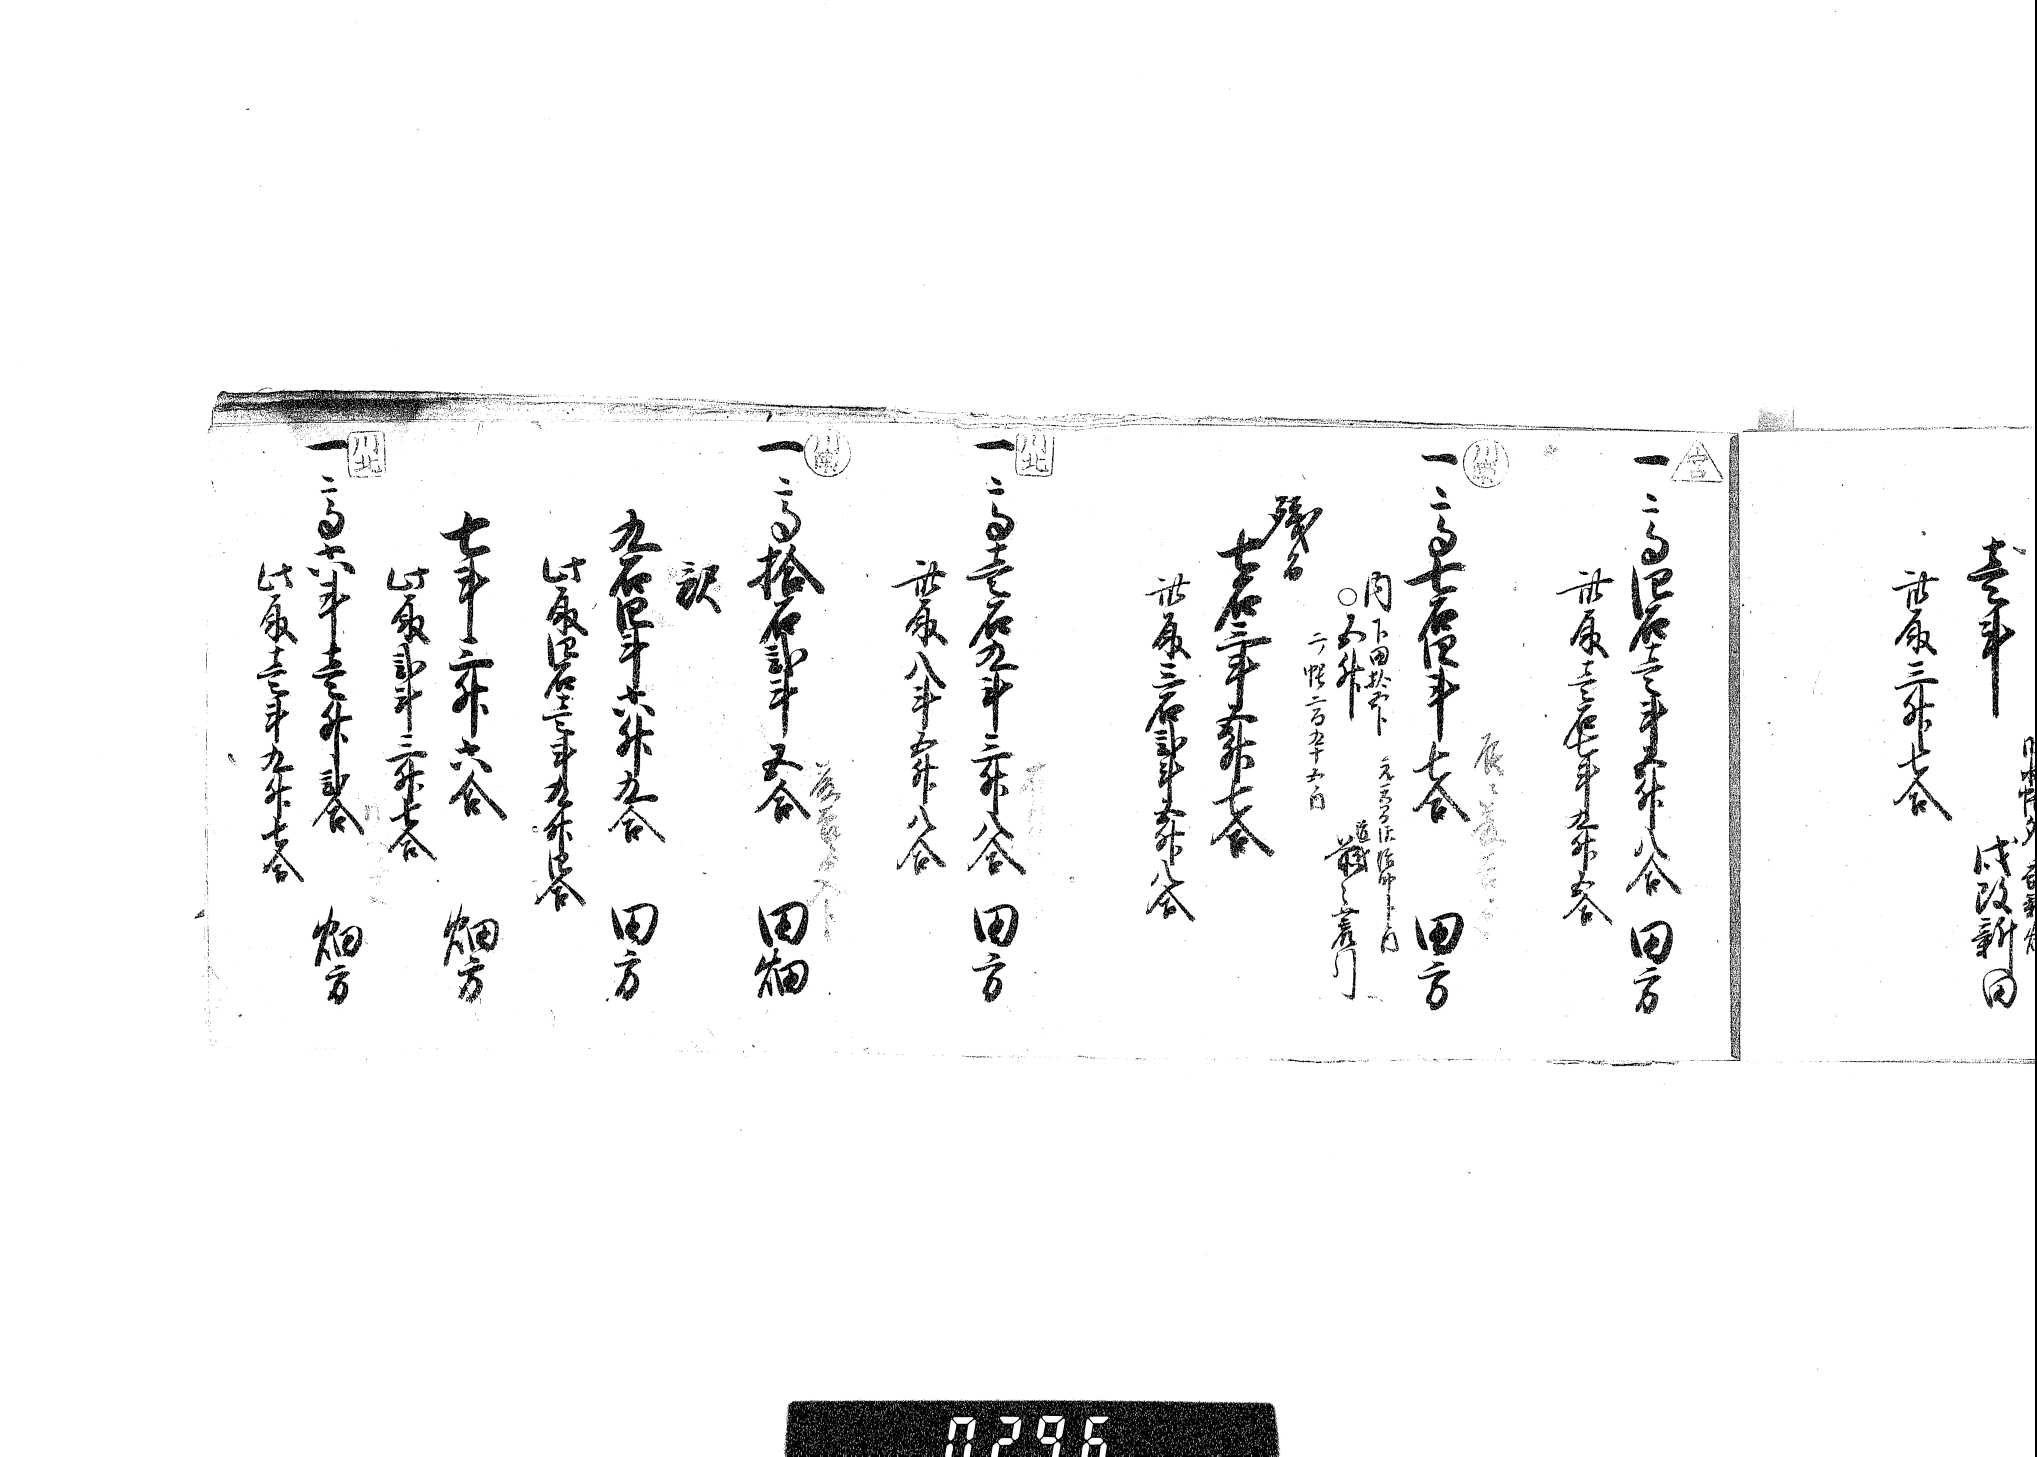 壱斗
戌改新田
此取三升七合
宮
一 高四石壱斗五升八合 田方
此取壱石七斗九升五合
川南
一 高七石四斗七合 田方
内 下田拾五卜
○五升
二ノ帳二百九十五内
残而
七石三斗五升七合
此取三石弐斗五升八合
川北
一 高壱石九斗三升八合 田方
此取八斗五升八合
川南
一 高拾石弐斗五合 田畑
訳
九石四斗六升九合 田方
此取四石壱斗九升四合
七斗三升六合 畑方
此取弐斗三升七合
川北
一 高六斗壱升弐合 畑方
此取壱斗九升七合
0296